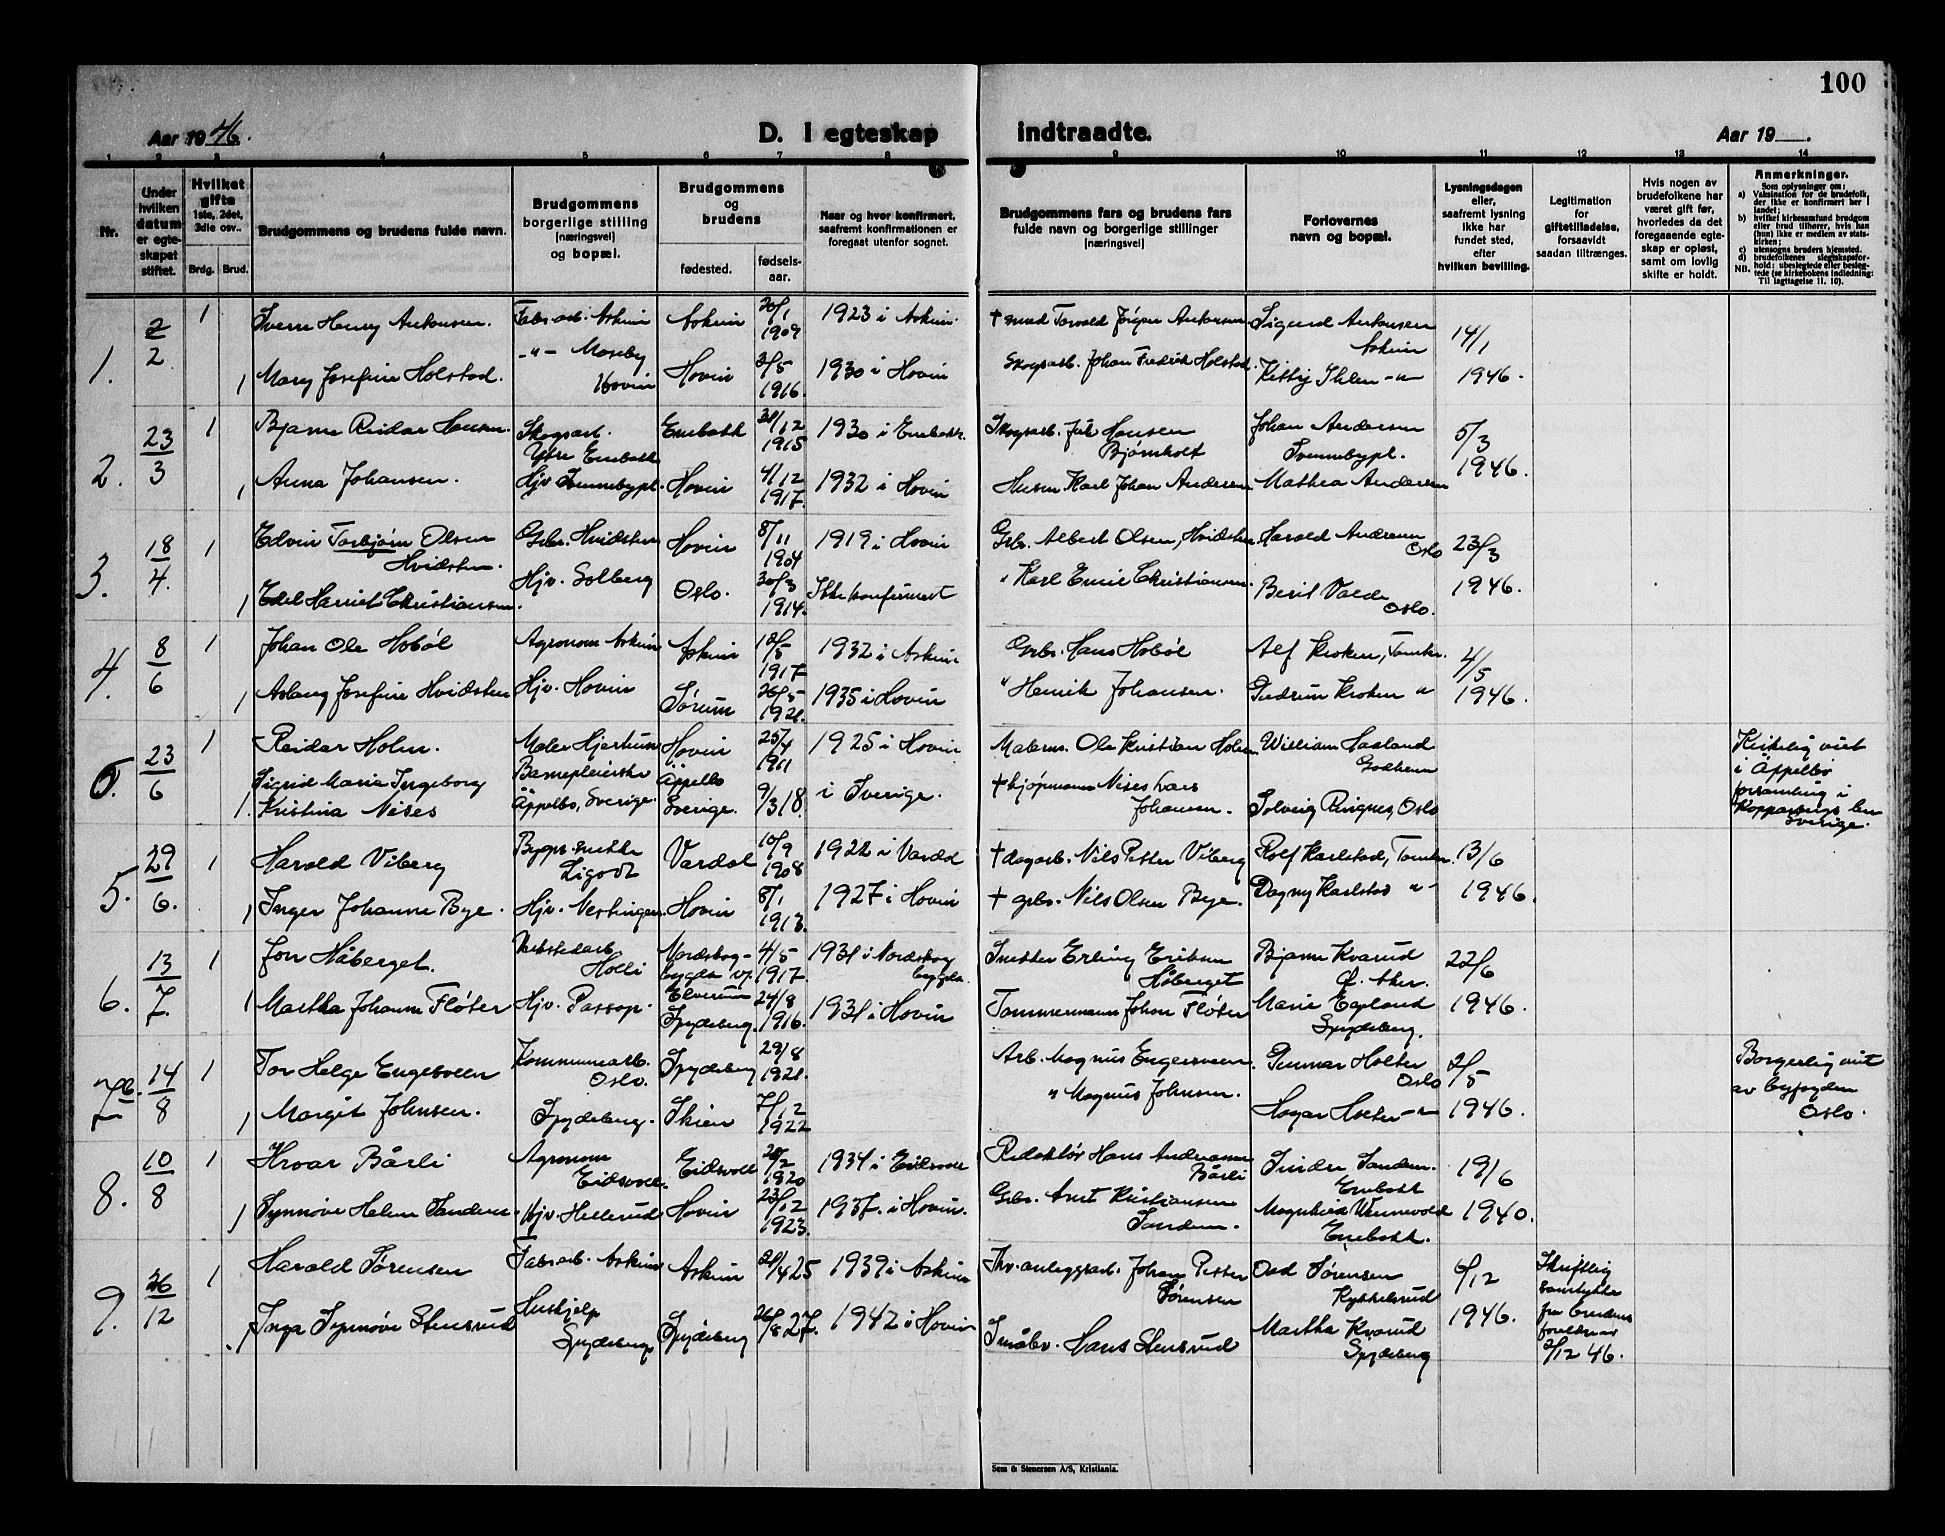 100
Aar 1946.
D. I egteskap indtraadte.
Aar 19__.
1 2 3 4 5 6 7 8 9 10 11 12 13 14
Nr.
Under hvilken datum er egte-skapet stiftet.
Hvilket gifte 1ste, 2det, 3die osv..
Brdg. Brud.
Brudgommens og brudens fulde navn.
Brudgommens borgerlige stilling (næringsvei) og bopæl.
Brudgommens og brudens
fødested.
fødsels-aar.
Naar og hvor konfirmert, saafremt konfirmationen er foregaat utenfor sognet.
Brudgommens fars og brudens fars fulde navn og borgerlige stillinger (næringsvei)
Forlovernes navn og bopæl.
Lysningsdagen eller, saafremt lysning ikke har fundet sted, efter hvilken bevilling.
Legitimation for giftetilladelse, forsaavidt saadan tiltrænges.
Hvis nogen av brudefolkene har været gift før, hvorledes da det foregaaende egte-skap er opløst, samt om lovlig skifte er holdt.
Anmerkninger.
Som oplysninger om:
a) Vaksination for de brudefolk, der ikke er konfirmert her i landet;
b) hvilket kirkesamfund brudgom eller brud tilhører, hvis han (hun) ikke er medlem av stats-kirken;
c) utensogns bruders hjemsted.
d) brudefolkenes slegtskapsfor-hold: ubeslegtede eller besleg-tede (se kirkebokens indledning:
NB. Til iagttagelse 11. 10).
1. 2/2 1 Henry Antonsen. Fabr.arb. Askim Askim 20/1 1909 1923 i Askim. Jørgen Antonsen Sigurd Antonsen Askim 14/1
1 Mary Josefine Holstad. -"- Moseby Hovin Hovin 2/5 1916. 1930 i Hovin Skogsarb. Johan Fredrik Holstad. Kitty Ihlen -"- 1946.
2. 23/3 1 Bjarne Reidar Hansen. Skogsarb. Ytre Enebakk Enebakk 31/12 1915 1930 i Enebakk. Skogsarb. Hansen Bjørnholt Johan Andersen Svennebypl. 5/3
1 Anna Johansen. Hjv. Svennebypl. Hovin 4/12 1917. 1932 i Hovin Karl Johan Andersen Mathea Andersen 1946.
3. 18/4. 1 Edvin Torbjørn Olsen Hvidsten. Grbr. Hvidsten Hovin 8/11 1904 1919 i Hovin Grbr. Albert Olsen, Hvidsten Harald Andersen Oslo 23/3
1 Edel Harriet Christiansen. Hjv. Solberg Oslo. 30/3 1914. Ikke konfirmert " Karl Emil Christiansen. Berit Oslo. 1946.
4. 8/6 1 Johan Ole Hobøl Agronom Askim Askim 12/5 1917 1932 i Askim Grbr. Hans Hobøl Alf Kroken, Tomter. 4/5
1 Aslaug Josefine Hvidsten Hjv. Hovin Sørum 26/5 1921. 1935 i Hovin " Henrik Johansen. Gudrun Kroken " 1946.
5. 23/6 1 Reidar Holm. Maler Hovin 25/4 1911 1925 i Hovin Malerm. Ole Kristian Holm William Haaland Godheim Kirkelig viet i Äppelbo forsamling i Kopparbergs len Sverige.
1. Sigrid Maria Ingeborg Kristina Nises Barnepleierske Äppelbo, Sverige. Äppelbo Sverige. 9/3 18. i Sverige. † kjøpmann Nises Lars Johansen. Solveig Ringnes, Oslo
5. 29/6. 1 Harald Viberg Vardal 10/9 1908 1922 i Vardal † dagarb. Nils Petter Viberg Rolf Karlstad, Tomter. 13/6
1 Inger Johanne Bye. Hjv. Hovin 8/1 1913. 1927 i Hovin † grbr. Nils Olsen Bye. Dagny Karlstad -"- 1946.
6. 13/7. 1 Jon Håberget. Verkstedarb. Holli Nordskog-bygda v/ Elverum 4/5 1917. 1931 i Nordskogbygda. Snekker Erling Eriksen Håberget Bjarne Kvarud Ø. Aker. 22/6
1 Martha Johanne Fløter Hjv. Passop. Spydeberg. 24/8 1916. 1931 i Hovin Tømmermann Johan Fløter Marie Egeland Spydeberg. 1946.
7b. 14/8 1 Tor Helge Engesveen Kommunearb. Oslo. Spydeberg 29/8 1921. Arb. Magnus Engesveen. Gunnar Holter Oslo 2/5 Borgerlig viet av byfogden Oslo.
1 Margit Johnsen. Spydeberg. Skien 7/12 1922 " Magnus Johnsen. Holter -"- 1946.
8. 10/8 1 Hroar Bårli Agronom Eidsvoll. Eidsvoll 28/2 1920 1934 i Eidsvoll Redaktør Hans Andreassen Bårli Sandem. Enebakk 19/6
1 Synnøve Helene Sandem. Hjv. Hellerud Hovin 23/12 1923. 1937. i Hovin. Grbr. Arnt Kristiansen Sandem. Magnhild Wennevold Enebakk. 1940.
9. 26/12 1 Harald Sørensen Fabr.arb. Askim Askim 21/4 25 1939 i Askim anleggsarb. Johan Petter Sørensen Odd Sørensen Kykkelsrud 6/12 Skriftlig samtykke fra brudens foreldre 2/12 46.
1 Inga Synnøve Stensrud Hushjelp Spydeberg Spydeberg 26/8 27. 1942 i Hovin Småbr. Hans Stensrud Martha Kvarud Spydeberg 1946.
Sem & Stenersen A/S, Kristiania.